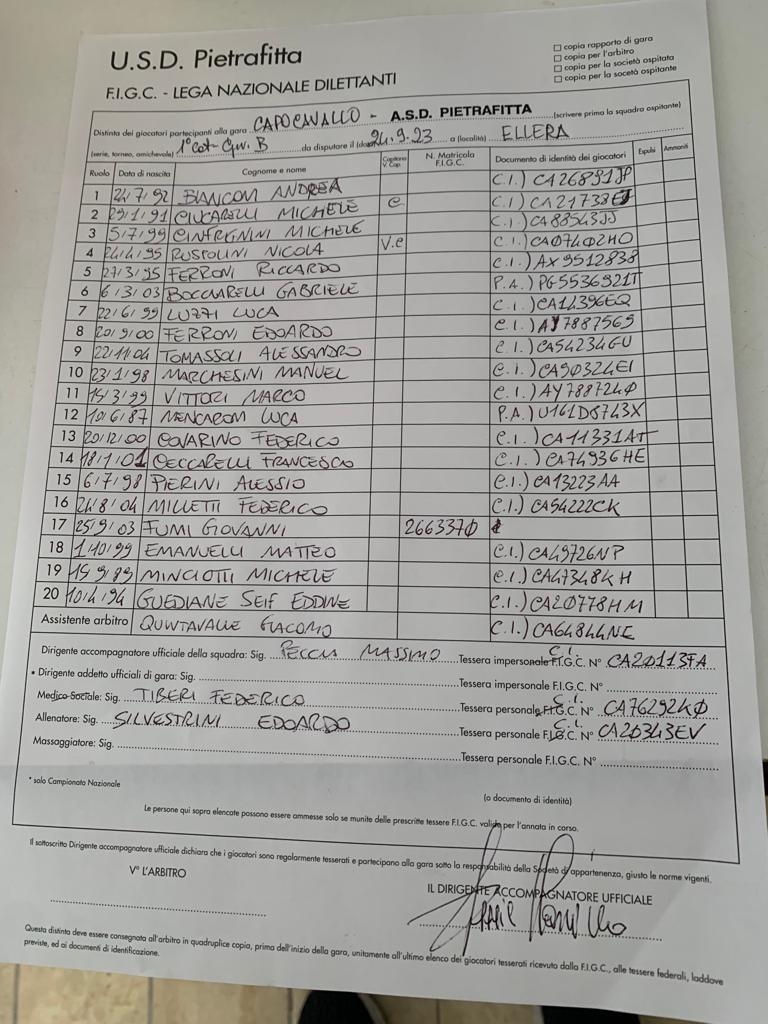 U.S.D. Pietrafitta
F.I.G.C. - LEGA NAZIONALE DILETTANTI
☐ copia rapporto di gara
☐ copia per l'arbitro
☐ copia per la società ospitata
☐ copia per la socetà ospitante
Distinta dei giocatori partecipanti alla gara CAPOCAVALLO - A.S.D. PIETRAFITTA (scrivere prima la squadra ospitante)
1° cat- Gir. B da disputare il (data) 24.9.23 a (località) ELLERA
(serie, torneo, amichevole)
Ruolo Data di nascita Cognome e nome Capitano V. Cap. N. Matricola F.I.G.C. Documento di identità dei giocatori Espulsi Ammoniti
1 24/7/92 BIANCONI ANDREA C.I.) CA26891JP
2 29/1/91 CIUCARELLI MICHELE C C.I.) CA21738EJ
3 5/7/99 MICHELE C.I.) CA88543JJ
4 24/4/95 RUSPOLINI NICOLA V.C C.I.) CA07402HO
5 27/3/95 FERRONI RICCARDO C.I.) AX9512838
6 6/3/03 BOCCIARELLI GABRIELE P.A.) PG5536921T
7 22/6/99 LUZZI LUCA C.I.) CA14396EQ
8 20/9/00 FERRONI EDOARDO C.I.) AY7887565
9 22/11/04 TOMASSOLI ALESSANDRO C.I.) CA54234GU
10 23/1/98 MARCHESINI MANUEL C.I.) CA90324EI
11 15/3/99 VITTORI MARCO C.I.) AY7887240
12 10/6/87 NENCARONI LUCA P.A.) U161D8743X
13 20/12/00 COVARINO FEDERICO C.I.) CA11331AT
14 18/1/01 CECCARELLI FRANCESCO C.I.) CA74936HE
15 6/7/98 PIERINI ALESSIO C.I.) CA13223AA
16 24/8/04 MILLETTI FEDERICO C.I.) CA54222CK
17 25/9/03 FUMI GIOVANNI 2663370
18 1/10/99 EMANUELLI MATTEO C.I.) CA49726NP
19 15/9/89 MINCIOTTI MICHELE C.I.) CA47348KH
20 10/4/94 GUEDIANE SEIF EDDINE C.I.) CA20778HM
Assistente arbitro QUINTAVALLE GIACOMO C.I.) CA64844NE
Dirigente accompagnatore ufficiale della squadra: Sig. PECCIA MASSIMO Tessera impersonale F.I.G.C. N° C.I. CA20113FA
• Dirigente addetto ufficiali di gara: Sig. Tessera impersonale F.I.G.C. N°
Medico Sociale: Sig. TIBERI FEDERICO Tessera personale F.I.G.C. N° C.I. CA76292KO
Allenatore: Sig. SILVESTRINI EDOARDO Tessera personale F.I.G.C. N° C.I. CA20343EV
Massaggiatore: Sig. Tessera personale F.I.G.C. N°
* solo Campionato Nazionale
(o documento di identità)
Le persone qui sopra elencate possono essere ammesse solo se munite delle prescritte tessere F.I.G.C. valide per l'annata in corso.
Il sottoscritto Dirigente accompagnatore ufficiale dichiara che i giocatori sono regolarmente tesserati e partecipano alla gara sotto la responsabilità della Società di appartenenza, giusto le norme vigenti.
V° L'ARBITRO
IL DIRIGENTE ACCOMPAGNATORE UFFICIALE
Questa distinta deve essere consegnata all'arbitro in quadruplice copia, prima dell'inizio della gara, unitamente all'ultimo elenco dei giocatori tesserati ricevuto dalla F.I.G.C., alle tessere federali, laddove
previste, ed ai documenti di identificazione.